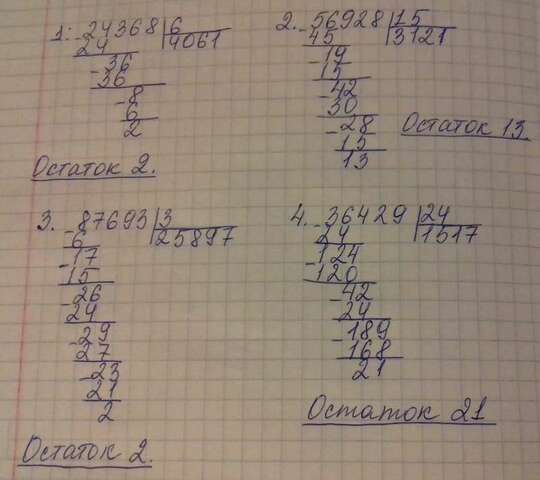 1: -24368 |6
24 4061
-36
36
-8
6
2
Остаток 2.
2. -56928 |15
45 3121
-19
15
-42
30
-28
15
13
Остаток 13.
3. -87693 |3
6 25897
-17
15
-26
24
-29
27
-23
21
2
Остаток 2.
4. -36429 |24
24 1517
-124
120
-42
24
-189
168
21
Остаток 21